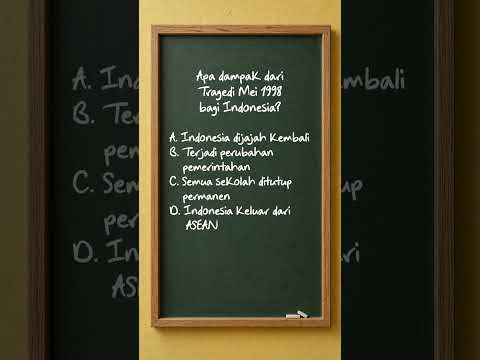 Apa dampak dari
Tragedi Mei 1998
bagi Indonesia?
A. Indonesia dijajah Kembali
B. Terjadi perubahan
pemerintahan
C. Semua sekolah ditutup
permanen
D. Indonesia Keluar dari
ASEAN